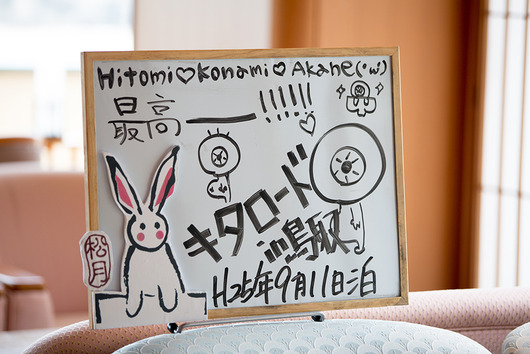 Hitomi♡Konami♡Akane(・ω・)
最高ー!!!!!
キタロード
in鳥取
H25年9月11日泊
松月